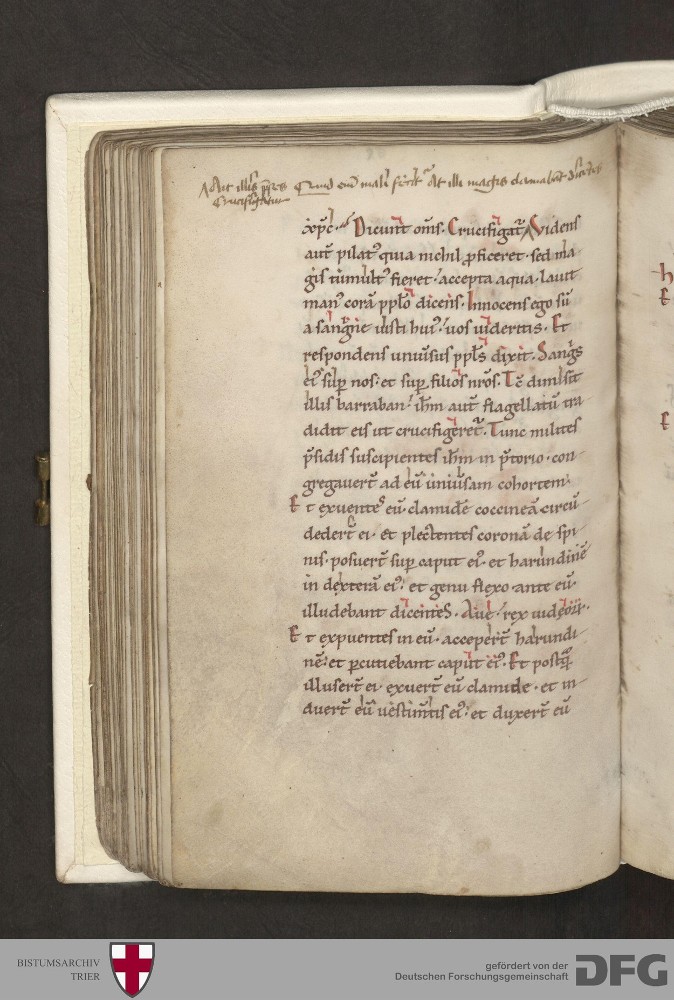 Ait illis preses Quid enim mali fecit At illi magis clamabant dicentes
Crucifigatur
xp̄c. Dicunt om̄s. Crucifigat᷒ Videns
aut̄ pilat᷒ quia nichil ꝓficeret. sed ma
gis tumult᷒ fieret. accepta aqua. lauit
man᷒ corā pplo dicens. Innocens ego sū
a sangine iusti hui᷒. uos uideritis. Et
respondens uniuersus ppl̄s dixit. Sangis
ei᷒ sup̱ nos. et sup̱ filios nr̄os. Tc̄ dimisit
illis barraban. ih̄m aut̄ flagellatū tra
didit eis ut crucifigeret᷒. Tunc milites
p̄sidis suscipientes ih̄m in p̄torio. con
gregauert̄ ad eū uniuersam cohortem.
Et exuentes eū. clamidē coccineā circū
dedert̄ ei. et plectentes coronā de spi
nis. posuert̄ sup̱ caput ei᷒. et harundinē
in dexterā ei᷒. et genu flexo ante eū.
illudebant dicentes. Aue rex iudeoꝝ.
Et expuentes in eū. accepert̄ harundi
nē. et ꝑcutiebant caput ei᷒. Et postꝗ̄
illusert̄ ei. exuert̄ eū clamide. et in
duert̄ eū uestimtis ei᷒. et duxert̄ eū
h
E
E
BISTUMSARCHIV
TRIER
gefördert von der
Deutschen Forschungsgemeinschaft
DFG